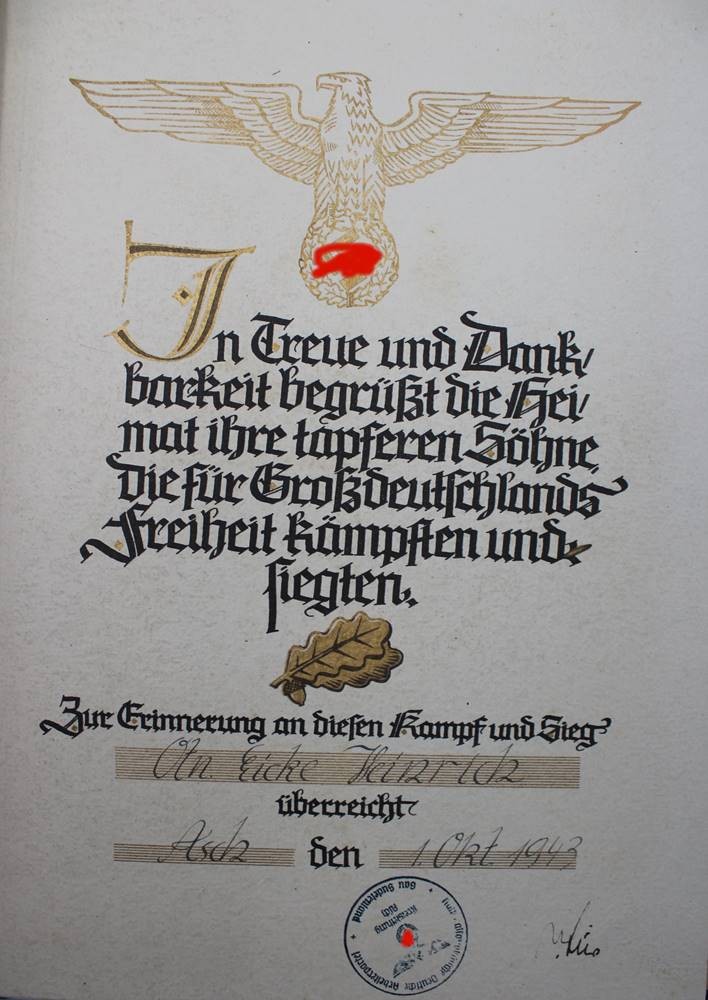 In Treue und Dank/
barkeit begrüßt die Hei/
mat ihre tapferen Söhne,
die für Großdeutschlands
Freiheit kämpften und
siegten.
Zur Erinnerung an diesen Kampf und Sieg
Oln. Eicke Heinrich
überreicht
Asch den 1. Okt. 1943
Deutsche Arbeiterpartei
Gau Sudetenland
Kreisleitung
Asch